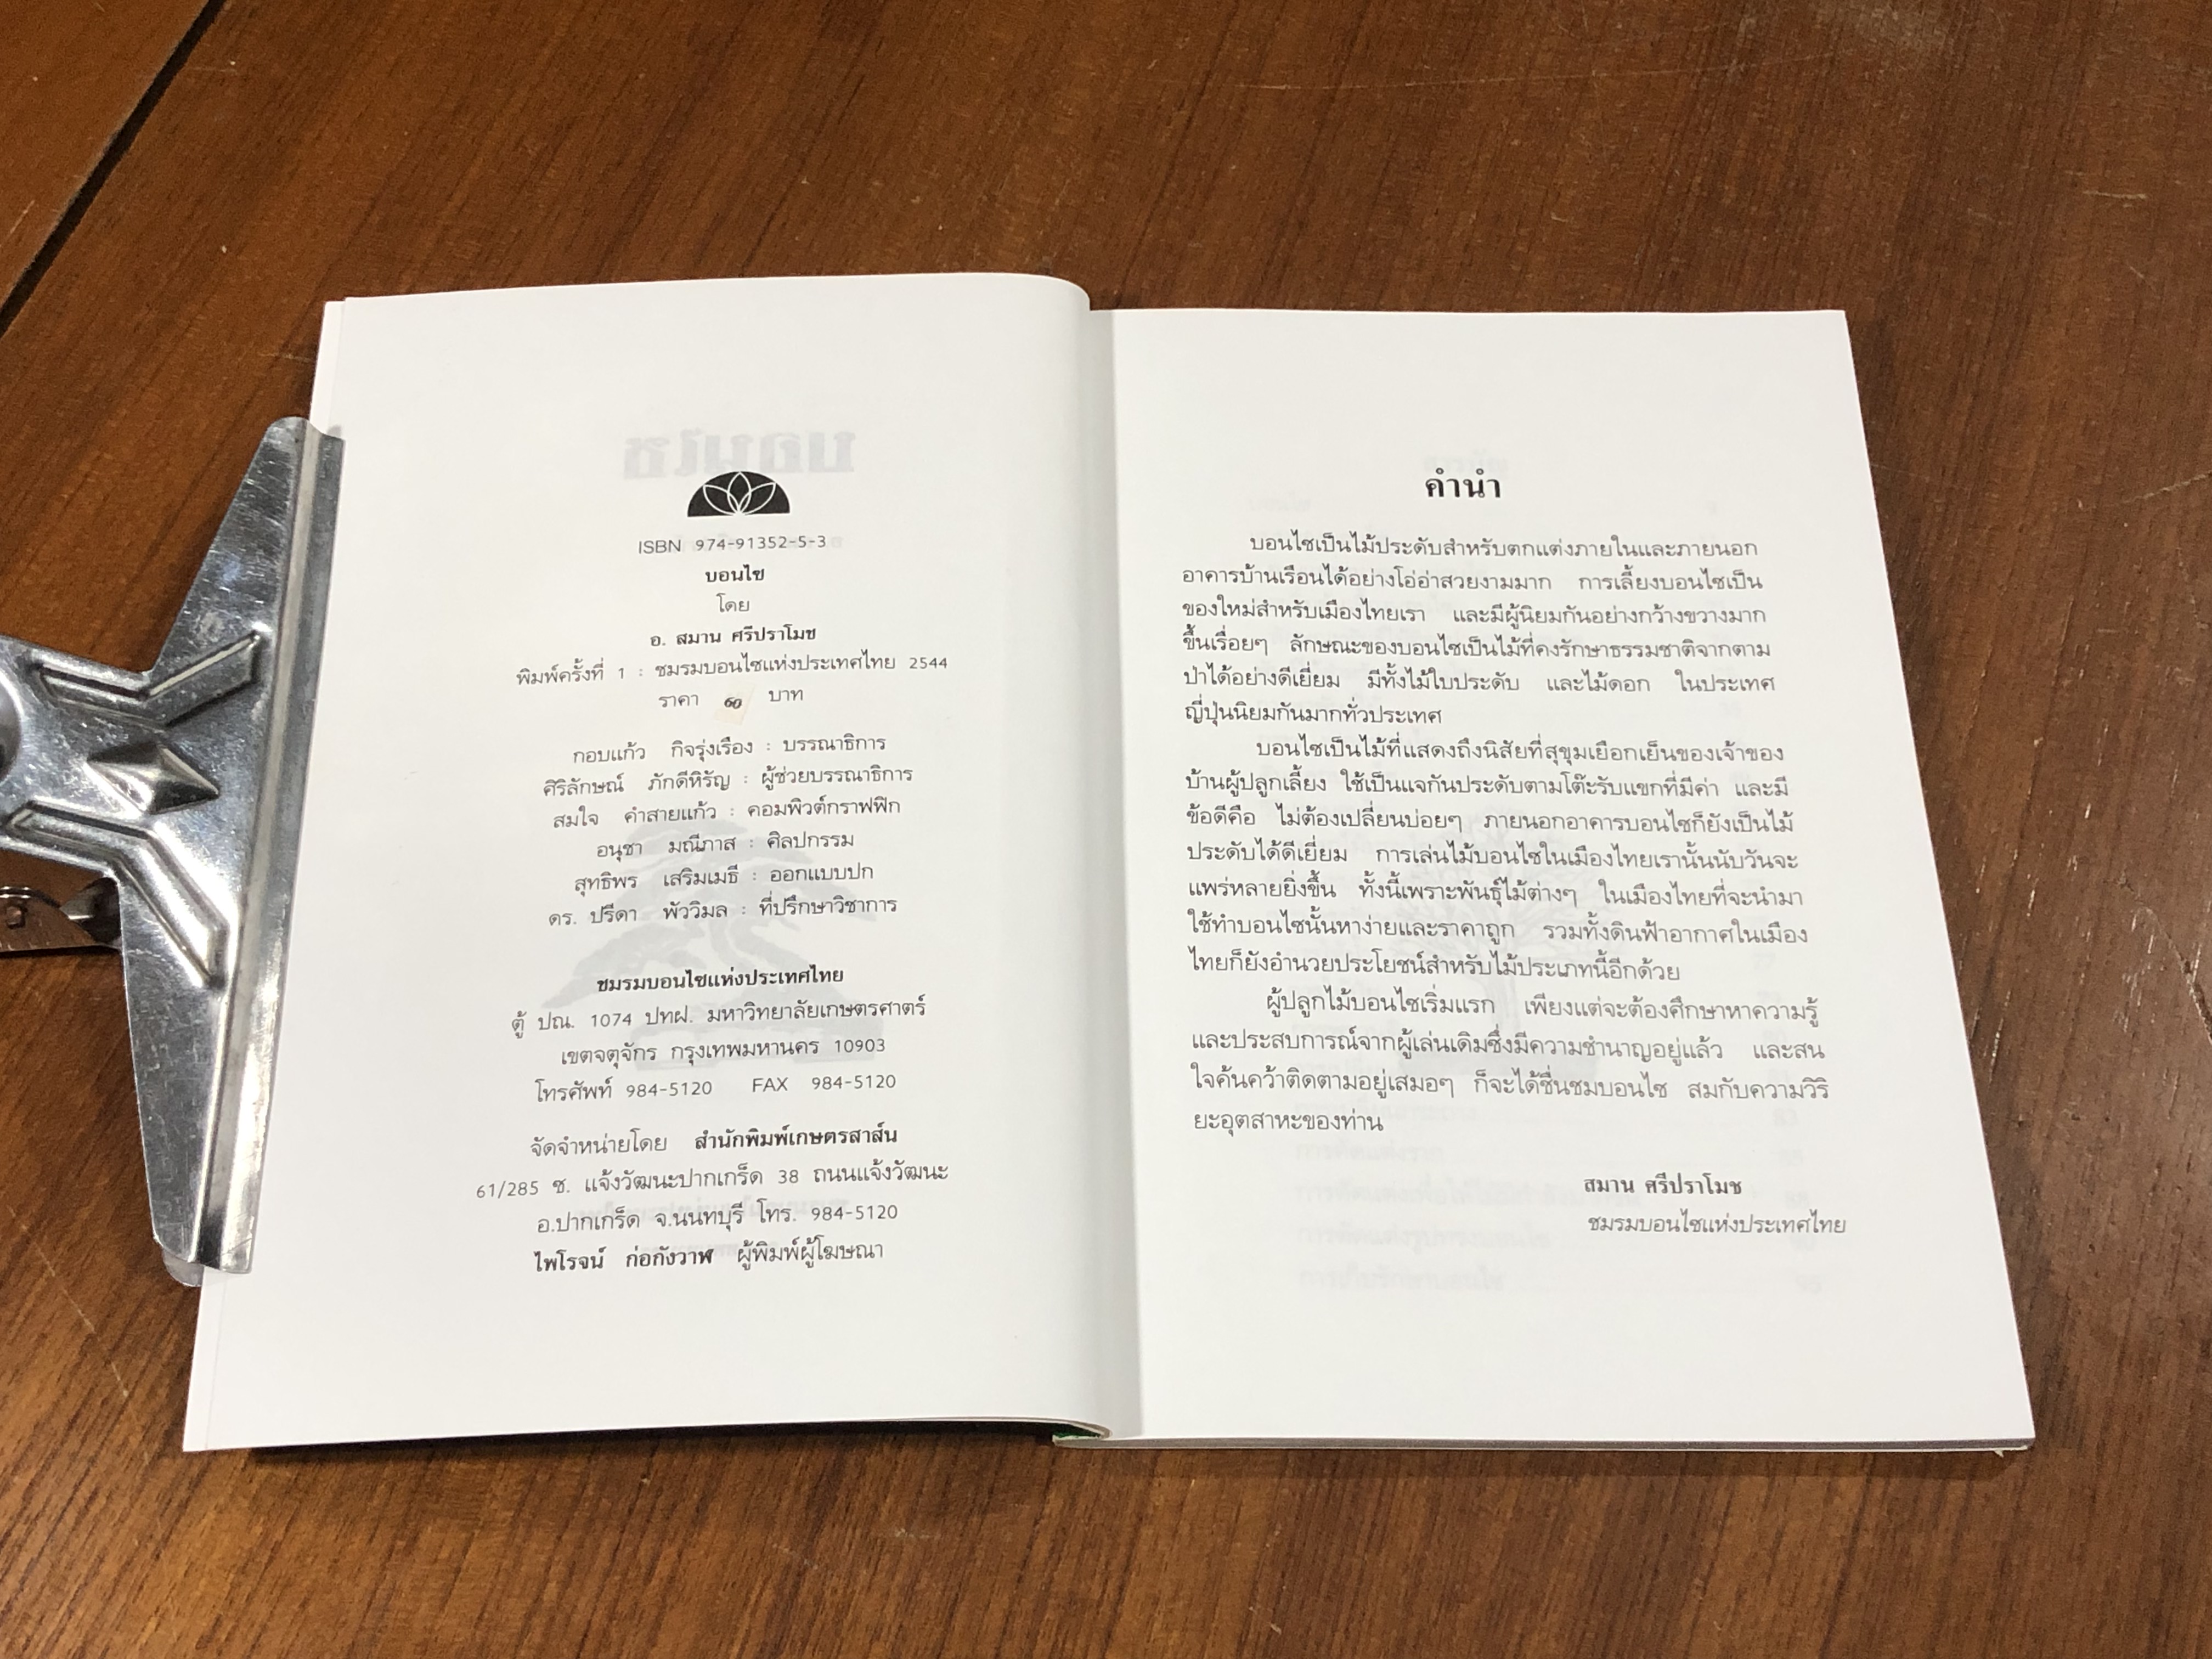 ISBN 974-91352-5-3
บอนไซ
โดย
อ. สมาน ศรีปราโมช
พิมพ์ครั้งที่ 1 : ชมรมบอนไซแห่งประเทศไทย 2544
ราคา 60 บาท
กอบแก้ว กิจรุ่งเรือง : บรรณาธิการ
ศิริลักษณ์ ภักดีหิรัญ : ผู้ช่วยบรรณาธิการ
สมใจ คำสายแก้ว : คอมพิวต์กราฟฟิก
อนุชา มณีภาส : ศิลปกรรม
สุทธิพร เสริมเมธี : ออกแบบปก
ดร. ปรีดา พัววิมล : ที่ปรึกษาวิชาการ
ชมรมบอนไซแห่งประเทศไทย
ตู้ ปณ. 1074 ปทฝ. มหาวิทยาลัยเกษตรศาตร์
เขตจตุจักร กรุงเทพมหานคร 10903
โทรศัพท์ 984-5120 FAX 984-5120
จัดจำหน่ายโดย สำนักพิมพ์เกษตรสาส์น
61/285 ซ. แจ้งวัฒนะปากเกร็ด 38 ถนนแจ้งวัฒนะ
อ.ปากเกร็ด จ.นนทบุรี โทร. 984-5120
ไพโรจน์ ก่อกังวาฬ ผู้พิมพ์ผู้โฆษณา
คำนำ
บอนไซเป็นไม้ประดับสำหรับตกแต่งภายในและภายนอก
อาคารบ้านเรือนได้อย่างโอ่อ่าสวยงามมาก การเลี้ยงบอนไซเป็น
ของใหม่สำหรับเมืองไทยเรา และมีผู้นิยมกันอย่างกว้างขวางมาก
ขึ้นเรื่อยๆ ลักษณะของบอนไซเป็นไม้ที่คงรักษาธรรมชาติจากตาม
ป่าได้อย่างดีเยี่ยม มีทั้งไม้ใบประดับ และไม้ดอก ในประเทศ
ญี่ปุ่นนิยมกันมากทั่วประเทศ
บอนไซเป็นไม้ที่แสดงถึงนิสัยที่สุขุมเยือกเย็นของเจ้าของ
บ้านผู้ปลูกเลี้ยง ใช้เป็นแจกันประดับตามโต๊ะรับแขกที่มีค่า และมี
ข้อดีคือ ไม่ต้องเปลี่ยนบ่อยๆ ภายนอกอาคารบอนไซก็ยังเป็นไม้
ประดับได้ดีเยี่ยม การเล่นไม้บอนไซในเมืองไทยเรานั้นนับวันจะ
แพร่หลายยิ่งขึ้น ทั้งนี้เพราะพันธุ์ไม้ต่างๆ ในเมืองไทยที่จะนำมา
ใช้ทำบอนไซนั้นหาง่ายและราคาถูก รวมทั้งดินฟ้าอากาศในเมือง
ไทยก็ยังอำนวยประโยชน์สำหรับไม้ประเภทนี้อีกด้วย
ผู้ปลูกไม้บอนไซเริ่มแรก เพียงแต่จะต้องศึกษาหาความรู้
และประสบการณ์จากผู้เล่นเดิมซึ่งมีความชำนาญอยู่แล้ว และสน
ใจค้นคว้าติดตามอยู่เสมอๆ ก็จะได้ชื่นชมบอนไซ สมกับความวิริ
ยะอุตสาหะของท่าน
สมาน ศรีปราโมช
ชมรมบอนไซแห่งประเทศไทย